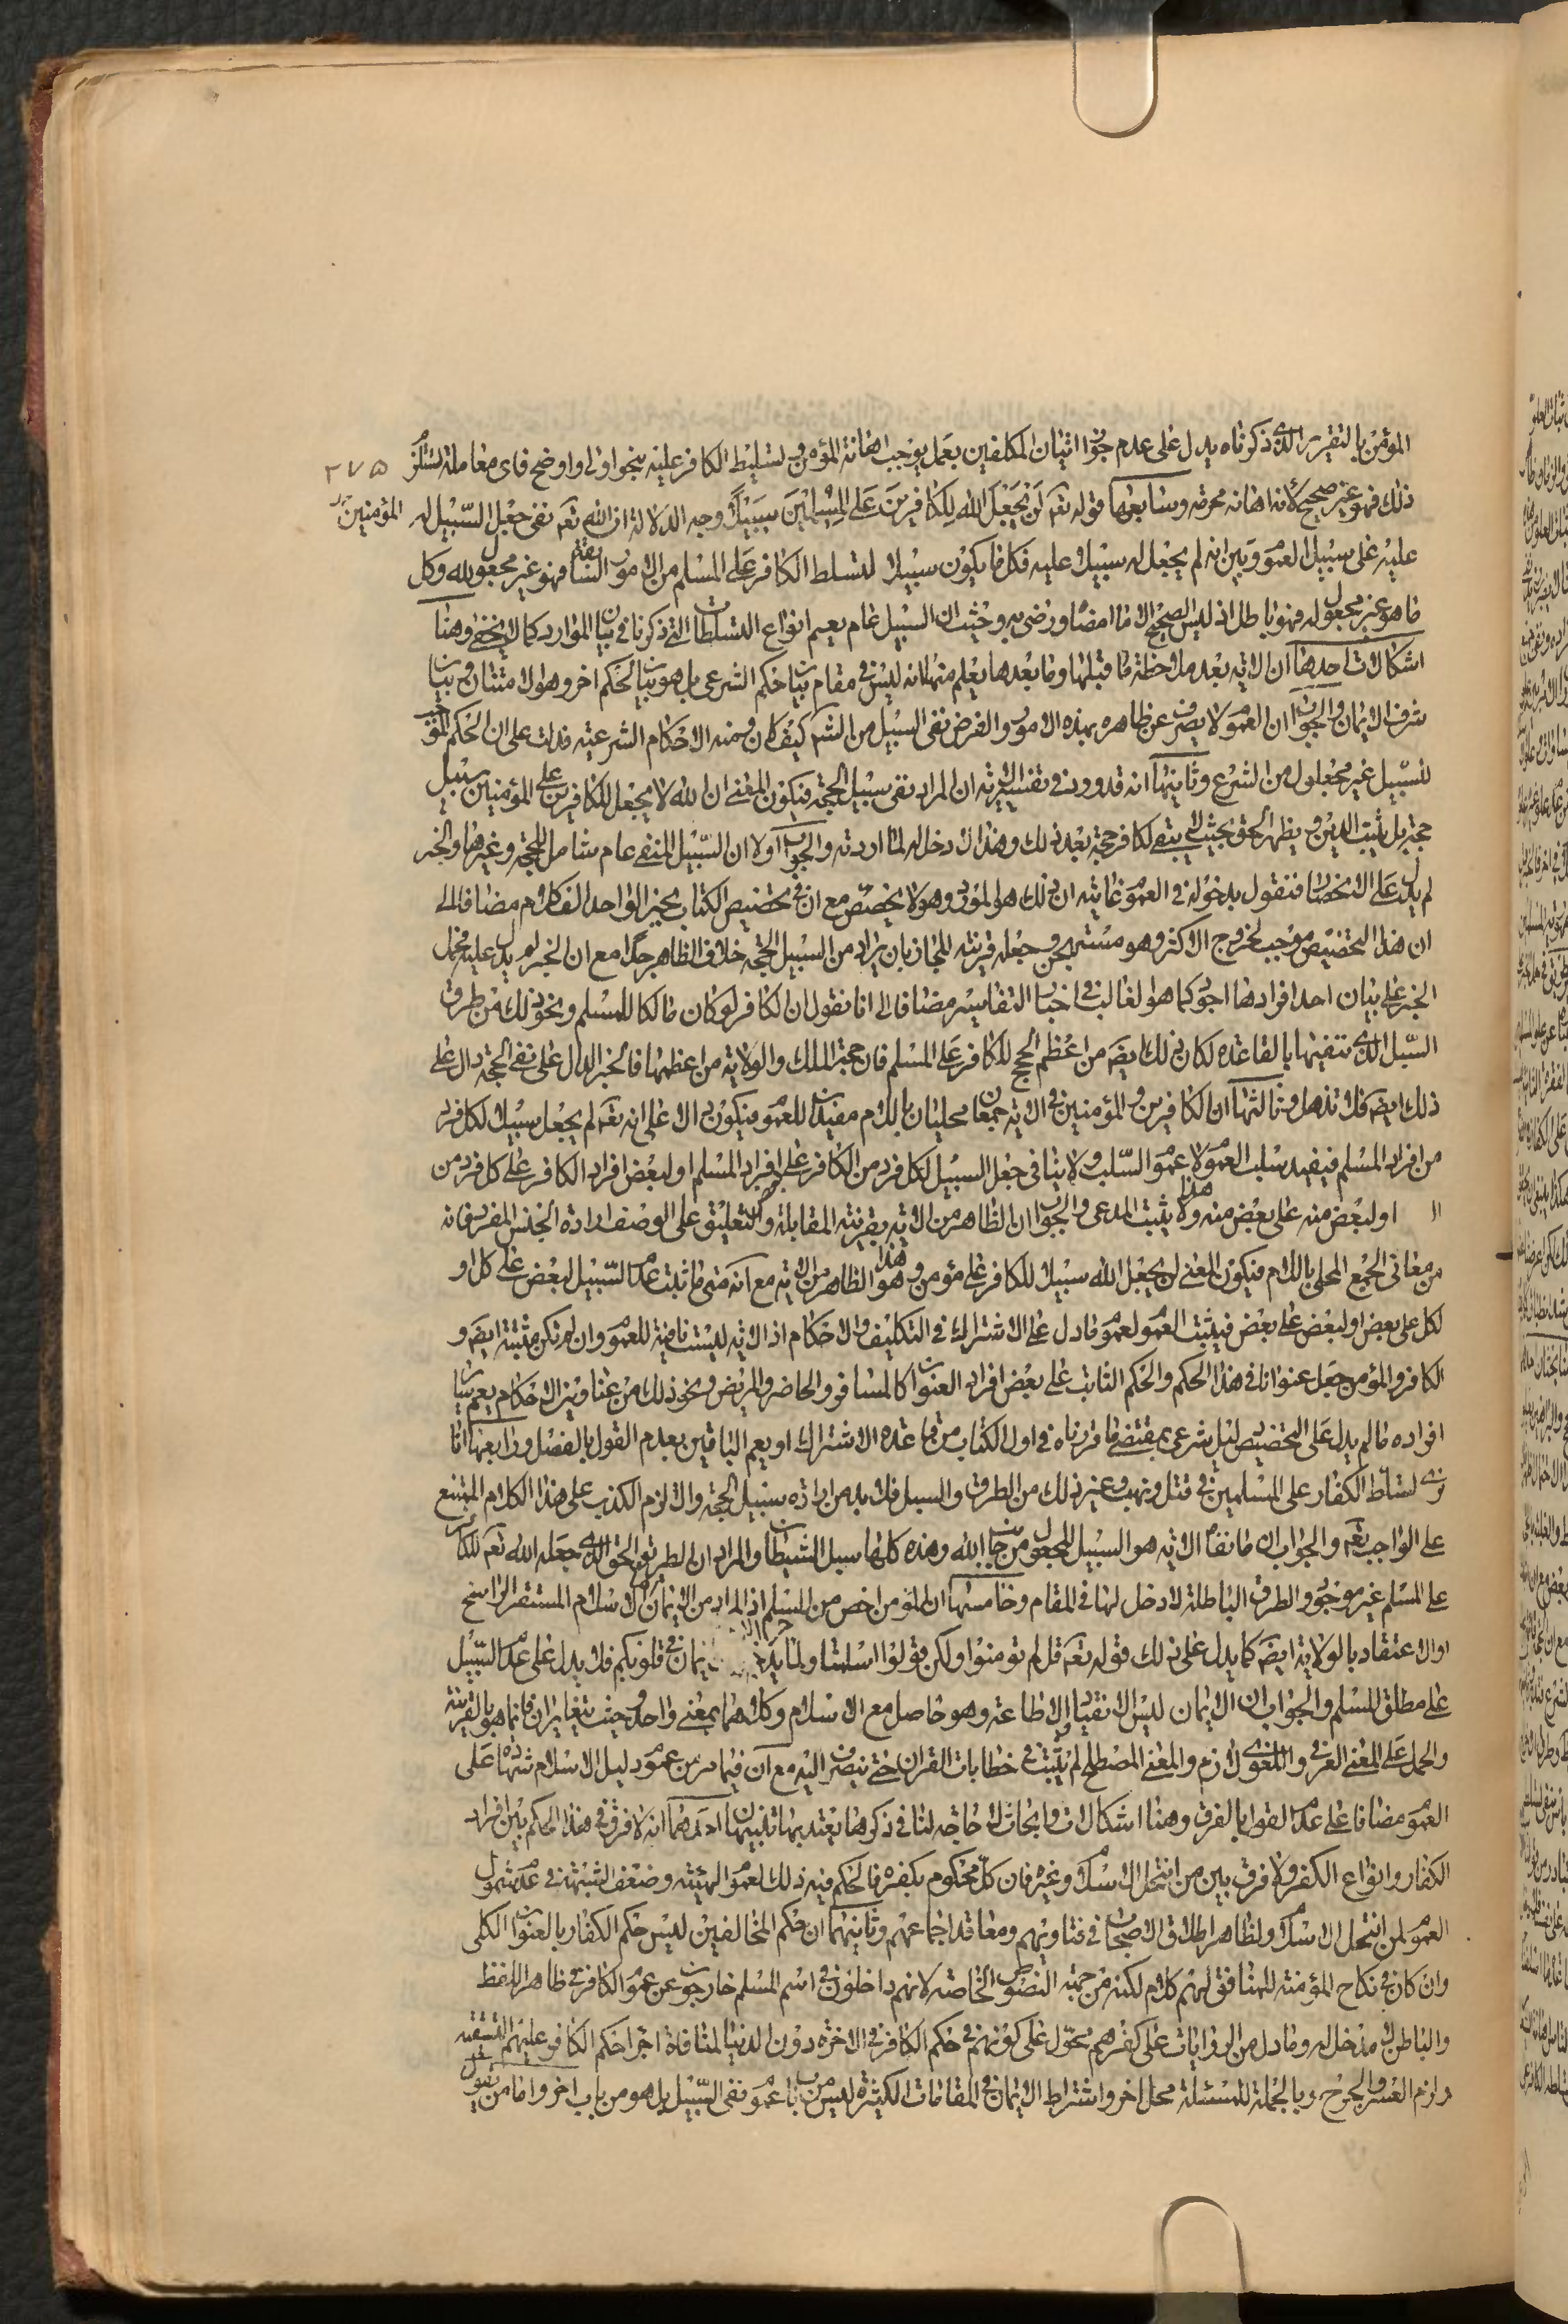 المؤمن بالتقرير الذى ذكرناه يدل على عدم جواز اتيان المكلفين بعمل يوجب اهانة المؤمن و تسليط الكافر عليه بنحو اولى و اوضح فاى معاملة تستلزم
٢٧٥
ذلك فهو غير صحيح لأنه اهانة محرمة وسابعها قوله تعم لَن يَجعَلَ الله لِلكافرينَ عَلَى المسلمينَ سبيلًا وجه الدلالة ان الله تعم نفى جعل السّبيل له
المؤمنين
عليه على سبيل العموم و بين انه لم يجعل له سبيلا عليه فكل ما يكون سبيلا لتسلط الكافر على المسلم من الامور السابقة فهو غير مجعول لله وكل
ما هو غير مجعول له فهو باطل اذ ليس الصحيح الا ما امضاه ورضى به وحيث ان السبيل عام يعم انواع التسلطات التى ذكرنا فى بيان الموارد كما لا يخفى وهنا
اشكالات احدها ان الاية بعد ملاحظة ما قبلها وما بعدها يعلم منها انه ليس فى مقام بيان حكم الشرعى بل هو بيان لحكم اخر وهو الامتنان وبيان
شرف الايمان والجواب ان العموم لا يصرف عن ظاهره بهذه الامور والغرض نفى السبيل من الشرع كيف كان ومنه الاحكام الشرعية فدلت على ان الحكم الموجب
للسّبيل غير مجعول من الشرع وثانيها انه قد ورد فى تفسير الاية ان المراد نفى سبيل الحجة فيكون المعنى ان الله لا يجعل للكافرين على المؤمنين سبيل
حجة بل يثبت الدين و يظهر الحق بحيث لا يبقى لكافر حجة بعد ذلك وهذا لا دخل له لما اردته والجواب اولا ان السّبيل المنفى عام شامل للحجة وغيرها والخبر
لم يدل على التخصيص فنقول بدخوله فى العموم غايته ان ذلك هو المورد وهو لا يخصّص مع ان فى تخصيص الكتاب بخبر الواحد الف كلام مضافا الى
ان هذا التخصيص موجب لخروج الاكثر وهو مستهجن و جعله قرينة للمجاز بان يراد من السبيل الحجة خلاف الظاهر جدا مع ان الخبر لم يدل عليه فيحمل
الخبر على بيان احد افرادها اجود كما هو الغالب فى اخبار التفاسير مضافا الى انا نقول ان الكافر لو كان مالكا للمسلم و نحو ذلك من طرق
السّبل الذى ننفيها بالقاعدة لكان ذلك ايضَ من اعظم الحجج للكافر على المسلم فان حجة الملك والولاية من اعظمها فالخبر الدال على نفى الحجة دال على
ذلك ايضَ فلا تذهل وثالثها ان الكافرين و المؤمنين فى الاية جمعان محليان باللام مفيدان للعموم فيكون دالا على انه تعم لم يجعل سبيلا لكل فرد
من افراد المسلم فيفيد سلب العموم لا عموم السّلب و لا ينافى جعل السبيل لكل فرد من الكافر على افراد المسلم او لبعض افراد الكافر على كل فرد من
او لبعض منه على بعض منه وهذا لا يثبت المدعى والجواب ان الظاهر من الاية بقرينة المقابلة والتعليق على الوصف ارادة الجنس المفرد فانه
من معانى الجمع المحلى باللام فيكون المعنى لن يجعل الله سبيلا للكافر على مؤمن و هذا هو الظاهر من الاية مع انه متى ما ثبت عدم السّبيل لبعض على كل او
لكل على بعض او لبعض على بعض فيثبت العموم لعموم ما دل على الاشتراك فى التكليف والاحكام اذ الاية ليست نافية للعموم وان لم تكن مثبتة ايضَ و
الكافر والمؤمن جعل عنوانا فى هذا الحكم والحكم الثابت على بعض افراد العنوان كالمسافر والحاضر والمريض ونحو ذلك من عناوين الاحكام يعم سائر
افراده ما لم يدل على التخصيص دليل شرعى بمقتضى ما قررناه فى اول الكتاب من قاعدة الاشتراك او يعم الباقين بعدم القول بالفصل ورابعها انا
نرى تسلّط الكفار على المسلمين فى قتل و نهب و غير ذلك من الطرق والسبل فلا بد من ارادة سبيل الحجة والا لزم الكذب على هذا الكلام الممتنع
على الواجب تعم والجواب ان ما نفاه الاية هو السبيل المجعول من جانب الله وهذه كلها سبل الشيطان والمراد ان الطريق الحق الذى جعله الله تعم للكافر
على المسلم غير موجود والطرق الباطلة لا دخل لها فى المقام وخامسها ان المؤمن اخص من المسلم اذ المراد من الايمان الاسلام المستقر الراسخ
او الاعتقاد بالولاية ايضَ كما يدل على ذلك قوله تعم قل لم تومنوا ولكن قولوا اسلمنا ولما يدخل الايمان فى قلوبكم فلا يدل على عدم السّبيل
على مطلق المسلم والجواب ان الايمان ليس الا انقيادا و الاطاعة وهو حاصل مع الاسلام وكلاهما بمعنى واحد وحيث يتغايران فانما هو بالقرينة
والحمل على المعنى العرفى و اللغوى لازم والمعنى المصطلح لم يثبت فى خطابات القران حتى ينصرف اليه مع ان فيما مر من عموم دليل الاسلام شهادة على
العموم مضافا على عدم القول بالفرق وهنا اشكالات وابحاث لا حاجة لنا فى ذكرها يعتد بها تنبيهان احدهما انه لا فرق فى هذا الحكم بين افراد
الكفار وانواع الكفر ولا فرق بين من انتحل الاسلام وغيره فان كلّ محكوم بكفره فالحكم فيه ذلك لعموم الهيئة وضعف الشبهة فى عدم شمول
العموم لمن انتحل الاسلام ولظاهر اطلاق الاصحاب فى فتاويهم ومعاقد اجماعهم وثانيهما ان حكم المخالفين ليس حكم الكفار بالعنوان الكلى
وان كان فى نكاح المؤمنة للمنافق لهم كلام لكنه من جهة النصوص الخاصة لانهم داخلون فى اسم المسلم خارجون عن عموم الكافر فى ظاهر اللفظ
والباطن لا مدخل له وما دل من الروايات على كفرهم محوّل على كونهم فى حكم الكافر فى الاخرة دون الدنيا لمنافاة اجراء حكم الكافر عليهم للتقية
ولزم العسر والحرج وبالجملة للمسئلة محل اخر واشتراط الايمان فى المقامات الكثيرة ليس من باب عموم نفى السّبيل بل هو من باب اخر واما من يقول